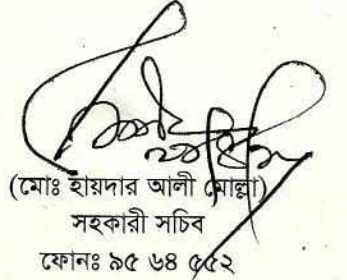 (মোঃ হায়দার আলী মোল্লা)
সহকারী সচিব
ফোনঃ ৯৫ ৬৪ ৫৫২